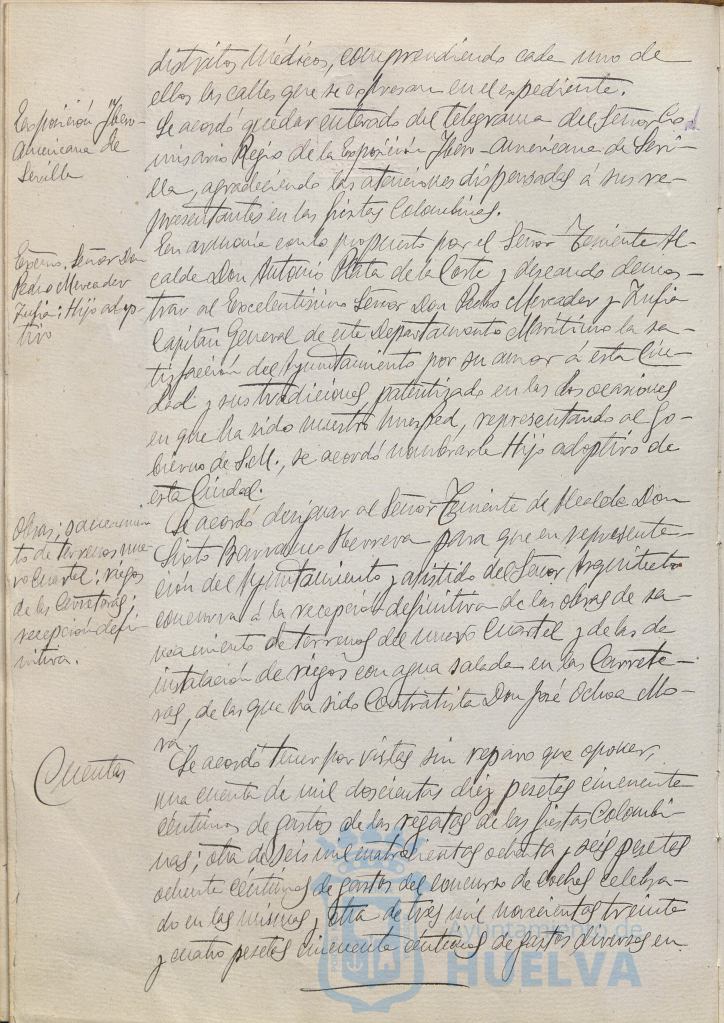 distritos Médicos, comprendiendo cada uno de
ellos las calles que se expresan en el expediente.
Exposición Ybero-
Americana de
Sevilla
Se acordó quedar enterado del telegrama del Señor Co-
misario Regio de la Exposición Ybero-Americana de Sevi-
lla, agradeciendo las atenciones dispensadas á sus re-
presentantes en las fiestas Colombinas.
Excmo. Señor Don
Pedro Mercader
Zufia: Hijo adop-
tivo
En armonía con lo propuesto por el Señor Teniente Al-
calde Don Antonio Plata de la Corte y deseando demos-
trar al Excelentísimo Señor Don Pedro Mercader y Zufia
Capitan General de este Departamento Marítimo la sa-
tisfacción del Ayuntamiento por su amor á esta Ciu-
dad y sus tradiciones, patentizado en las dos ocasiones
en que ha sido nuestro huesped, representando al Go-
bierno de S.M., se acordó nombrarle Hijo adoptivo de
esta Ciudad.
Obras; saneamien
to de terrenos nue-
vo Cuartel: riegos
de las Carreteras:
recepción defi-
nitiva.
Se acordó designar al Señor Teniente de Alcalde Don
Sixto Barranco Herrera para que en representa-
ción del Ayuntamiento y asistido del Señor Arquitecto
concurra á la recepción definitiva de las obras de sa-
neamiento de terrenos del nuevo Cuartel y de las de
instalación de riegos con agua salada en las Carrete-
ras, de las que ha sido Contratista Don José Ochoa Mo-
ra.
Cuentas
Se acordó tener por vistas sin reparo que oponer,
una cuenta de mil doscientas diez pesetas cincuenta
céntimos de gastos de las regatas de las fiestas Colombi-
nas; otra de seis mil cuatrocientas ochenta y seis pesetas
ochenta céntimos de gastos del concurso de coches celebra-
do en las mismas; otra de tres mil novecientas treinta
y cuatro pesetas cincuenta céntimos de gastos diversos en
Ayuntamiento de
HUELVA